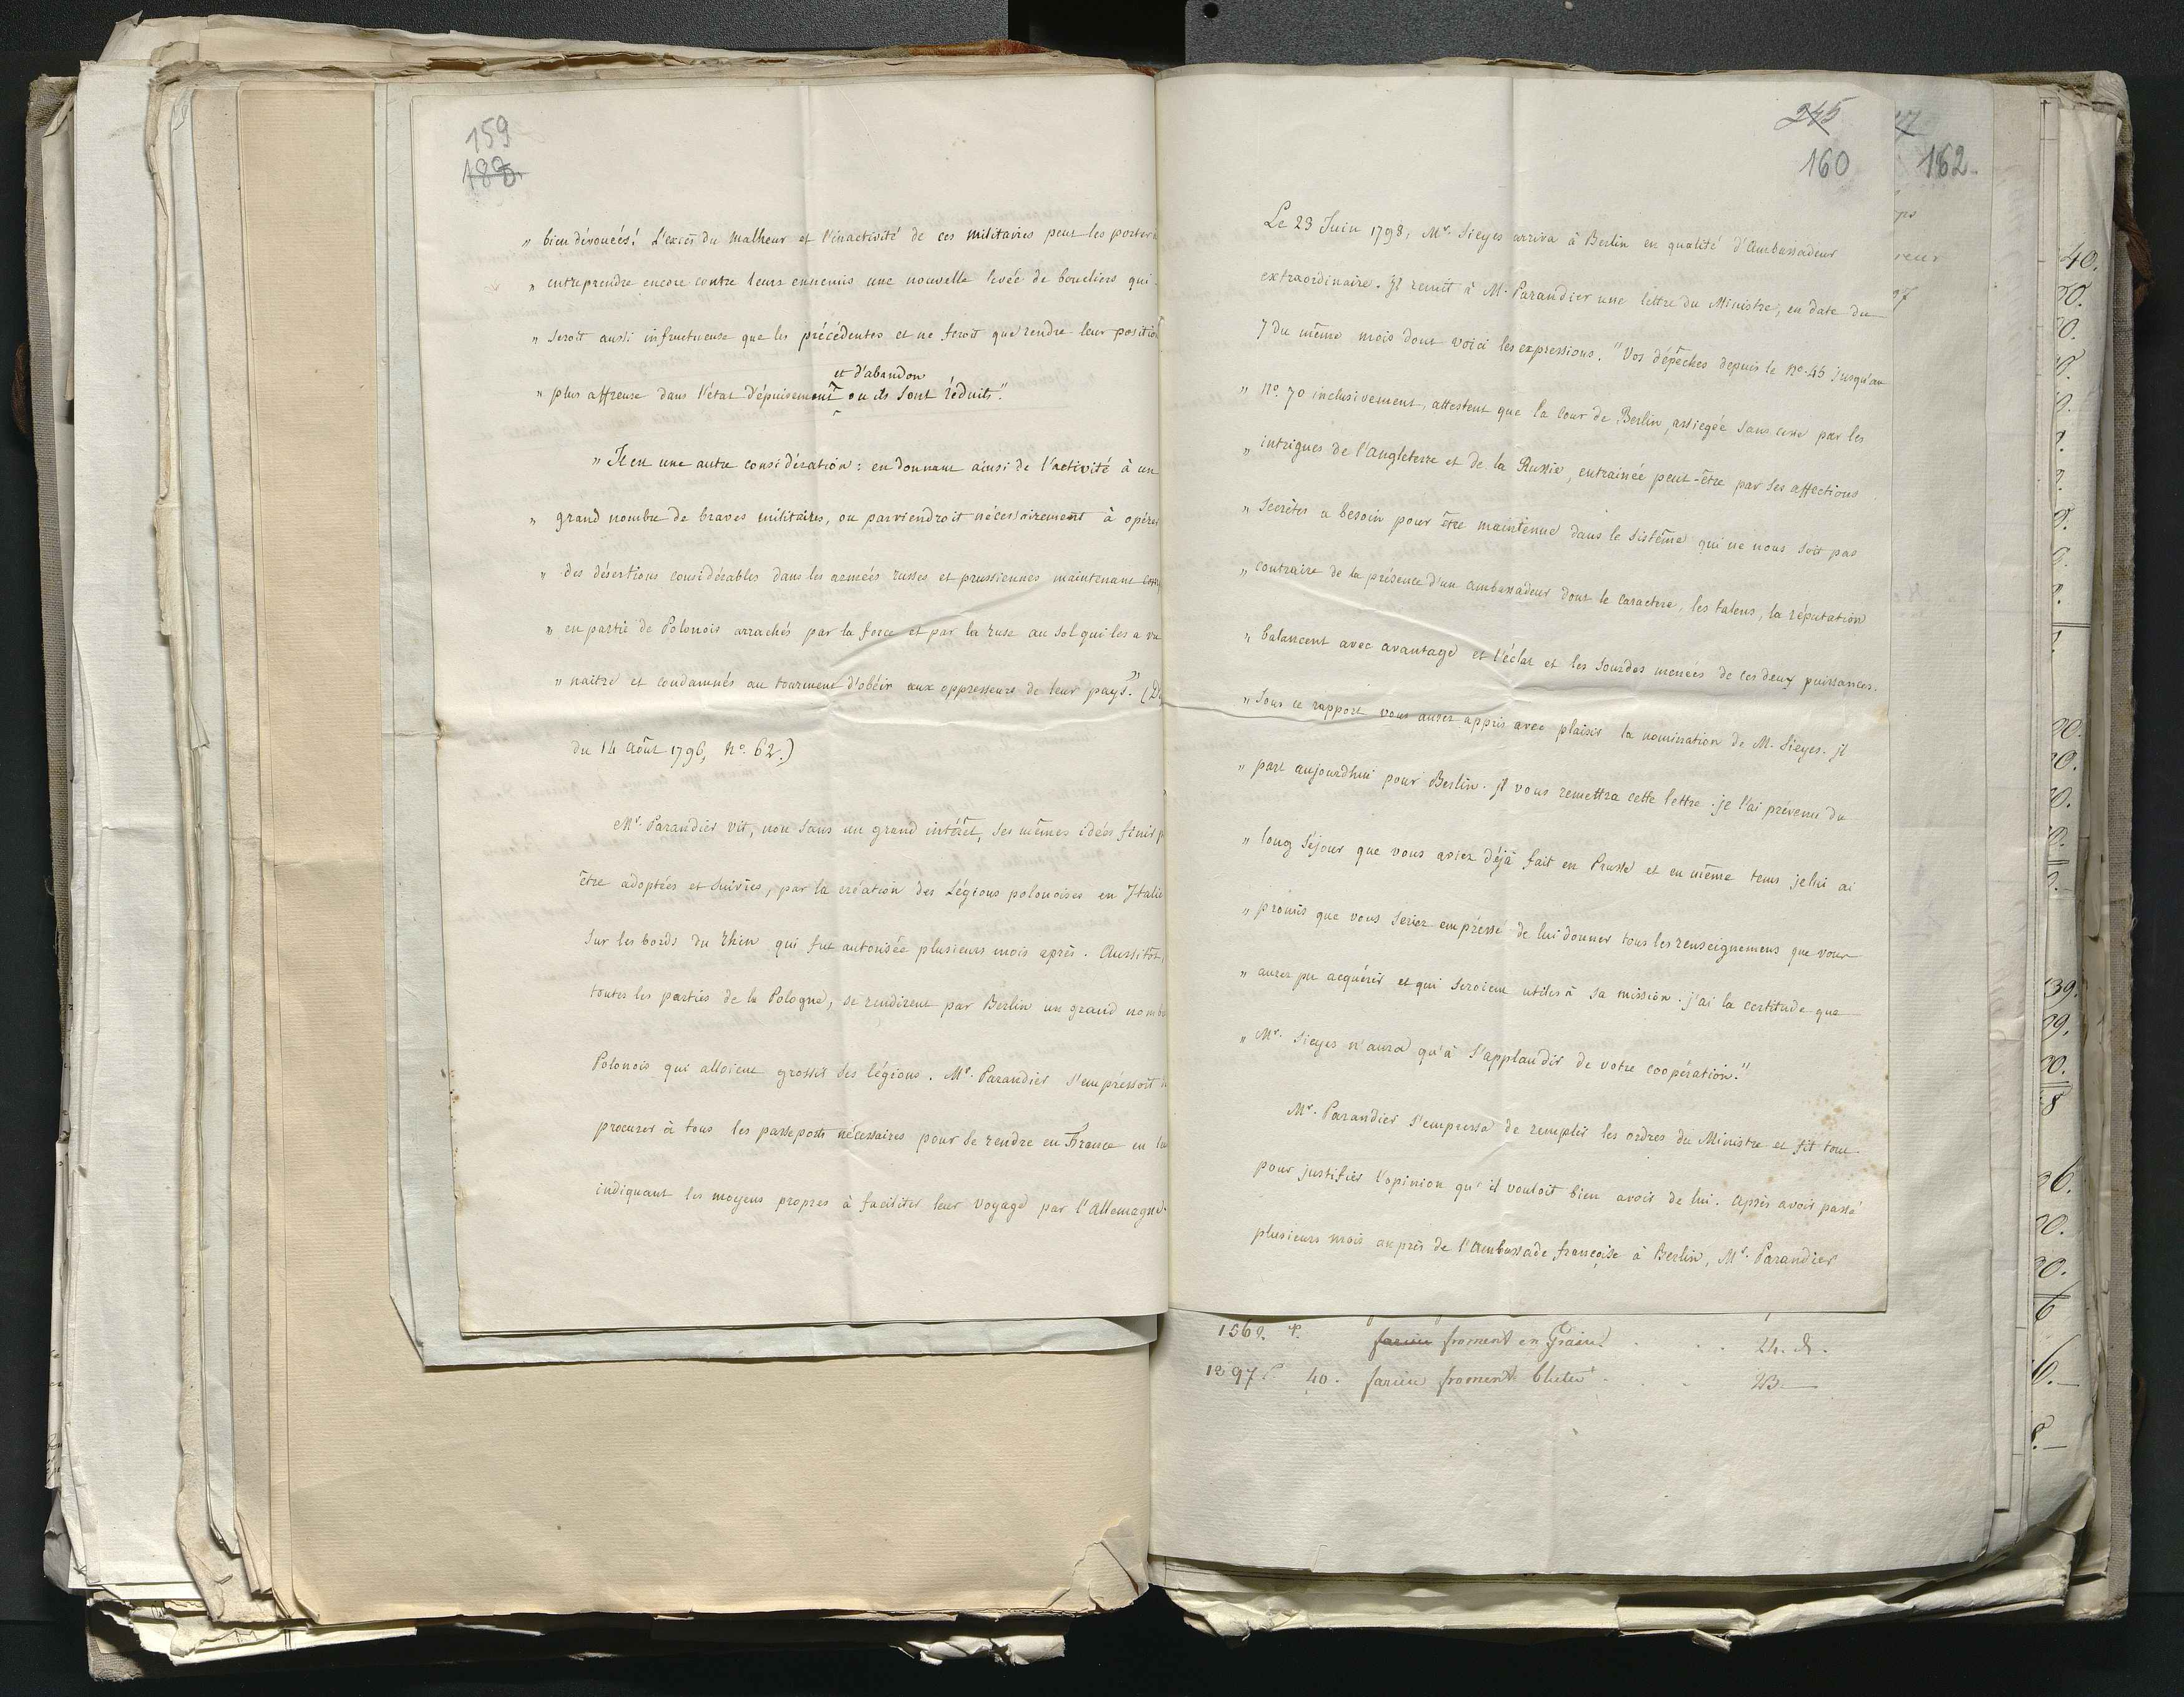 159
188
„ bien dévouées! L'excès du Malheur et l'inactivité de ces militaires peut les porter
„ entreprendre encore contre leurs ennemis une nouvelle levée de boucliers qui
„ seroit aussi infructueuse que les précédentes et ne feroit que rendre leur position
et d'abandon
„ plus affreuse dans l'état d'épuisement où ils sont réduits."
„ Il est une autre considération: en donnant ainsi de l'activité à un
„ grand nombre de braves militaires, on parviendroit nécessairement à opérer
„ des désertions considérables dans les armées russes et prussiennes maintenant
„ en partie de Polonois arrachés par la force et par la ruse au sol qui les a vu
„ naitre et condamnés au tourment d'obéir aux oppresseurs de leur pays." (
du 14 août 1796, No. 62.)
Mr. Parandier vit, non sans un grand intérêt, ses mêmes idées finir
être adoptées et suivies, par la création des Légions polonoises en Italie
sur les bords du rhin qui fut autorisée plusieurs mois après. Aussitôt,
toutes les parties de la Pologne, se rendirent par Berlin un grand nomb
Polonois qui alloient grossir ses légions. Mr. Parandier s'empressoit
procurer à tous les passeports nécessaires pour se rendre en France en
indiquant les moyens propres à faciliter leur voyage par l'Allemagne.
245
160
162
Le 23 Juin 1798, Mr. Sieyes arriva à Berlin en qualité d'Ambassadeur
extraordinaire. Il remit à M. Parandier une lettre du Ministre, en date du
7 du même mois dont voici les expressions. "Vos dépêches depuis le No. 45 jusqu'au
„ No. 70 inclusivement, attestent que la Cour de Berlin, assiegée sans cesse par les
„ intrigues de l'Angleterre et de la Russie, entrainée peut-être par ses affections
„ secrètes a besoin pour être maintenue dans le sistême qui ne nous soit pas
„ contraire de la présence d'un ambassadeur dont le caractere, les talens, la réputation
„ balancent avec avantage et l'éclat et les sourdes menées de ces deux puissances.
„ Sous ce rapport vous aurez appris avec plaisir la nomination de M. Sieyes. il
„ part aujourdhui pour Berlin. il vous remettra cette lettre. je l'ai prévenu du
„ long séjour que vous aviez déjà fait en Prusse et en même tems je lui ai
„ promis que vous seriez empressé de lui donner tous les renseignemens que vous
„ aurez pu acquérir et qui seroient utiles à sa mission. j'ai la certitude que
„ Mr. Sieyes n'aura qu'à s'applaudir de votre coopération."
Mr. Parandier s'empressa de remplir les ordres du Ministre et fit tout
pour justifier l'opinion qu'il vouloit bien avoir de lui. Après avoir passé
plusieurs mois auprès de l'Ambassade françoise à Berlin, Mr. Parandier
1562. farine froment en Grain 24. d.
1297 40. farine froment bluté 23